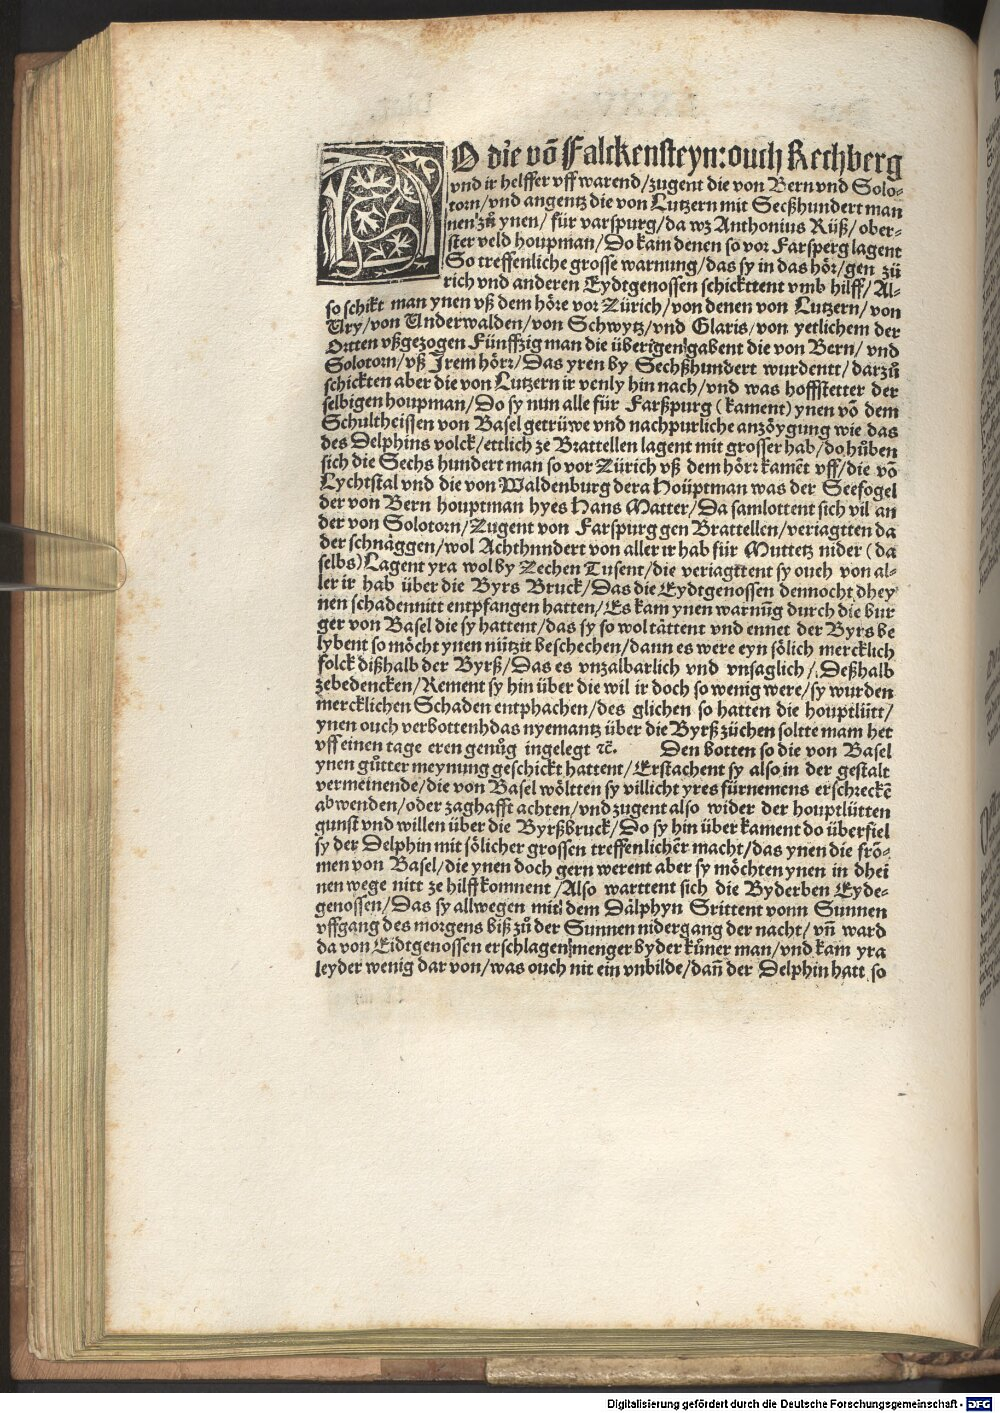 DO die vō Falckensteyn: ouch Rechberg
vnd ir helffer vff warend/zugent die von Bern vnd Solo-
torn/vnd angentz die von Lutzern mit Secßhundert man
nen zů ynen/ für varspurg/da wz Anthonius Rüß/ ober-
ster veld houpman/Do kam denen so vor Farsperg lagent
So treffenliche grosse warnung/das sy in das hör/gen zü
rich vnd anderen Eydtgenossen schickttent vmb hilff/Al-
so schikt man ynen vß dem höre vor Zürich/von denen von Lutzern/von
Ury/von Underwalden/von Schwytz/vnd Glaris/von yetlichem der
Ortten vßgezogen Fünffzig man die überigen gabent die von Bern/ vnd
Solotorn/vß Irem hörr/Das yren by Sechßhundert wurdentt/darzů
schickten aber die von Lutzern ir venly hin nach/vnd was hoffstetter der
selbigen houpman/Do sy nun alle für Farßpurg (kament) ynen vō dem
Schultheissen von Basel getrüwe vnd nachpurliche anzöygung wie das
des Delphins volck/ettlich ze Brattellen lagent mit grosser hab/do hůben
sich die Sechs hundert man so vor Zürich vß dem hörr kamēt vff/die vō
Lychtstal vnd die von Waldenburg dera Hoüptman was der Seefogel
der von Bern houptman hyes Hans Matter/Da samlottent sich vil an
der von Solotorn/Zugent von Farspurg gen Brattellen/veriagtten da
der schnäggen/wol Achthnndert von aller ir hab für Muttetz nider (da
selbs) Lagent yra wol by Zechen Tusent/die veriagttent sy ouch von al-
ler ir hab über die Byrs Bruck/Das die Eydtgenossen dennocht dhey
nen schadennitt entpfangen hatten/Es kam ynen warnūg durch die bur
ger von Basel die sy hattent/das sy so wol tåttent vnd ennet der Byrs be
lybent so möcht ynen nützit beschechen/dann es were eyn sölich mercklich
folck dißhalb der Byrß/Das es vnzalbarlich vnd vnsaglich/.Deßhalb
zebedencken/Kement sy hin über die wil ir doch so wenig were/sy wurden
mercklichen Schaden entphachen/des glichen so hatten die houptlütt/
ynen ouch verbottenhdas nyemantz über die Byrß züchen soltte mam het
vff einen tage eren genůg ingelegt ⁊c̄. Den botten so die von Basel
ynen gůtter meynung geschickt hattent/Erstachent sy also in der gestalt
vermeinende/die von Basel wöltten sy villicht yres fürnemens erschreckē
abwenden/oder zaghafft achten/vnd zugent also wider der houptlütten
gunst vnd willen über die Byrßbruck/Do sy hin über kament do überfiel
sy der Delphin mit sölicher grossen treffenlichēr macht/das ynen die frō-
men von Basel/die ynen doch gern werent aber sy möchten ynen in dhei
nen wege nitt ze hilff komnent/Also warttent sich die Byderben Eyde-
genossen/Das sy allwegen mit dem Dålphyn Strittent vonn Sunnen
vffgang des morgens biß zů der Sunnen nidergang der nacht/ vñ ward
da von Eidtgenossen erschlagen menger byder kůner man/vnd kam yra
leyder wenig dar von/was ouch nit ein vnbilde/dañ der Delphin hatt so
Digitalisierung gefördert durch die Deutsche Forschungsgemeinschaft - DFG